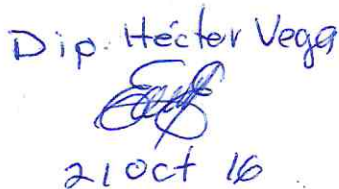 Dip. Héctor Vega
21 Oct 16